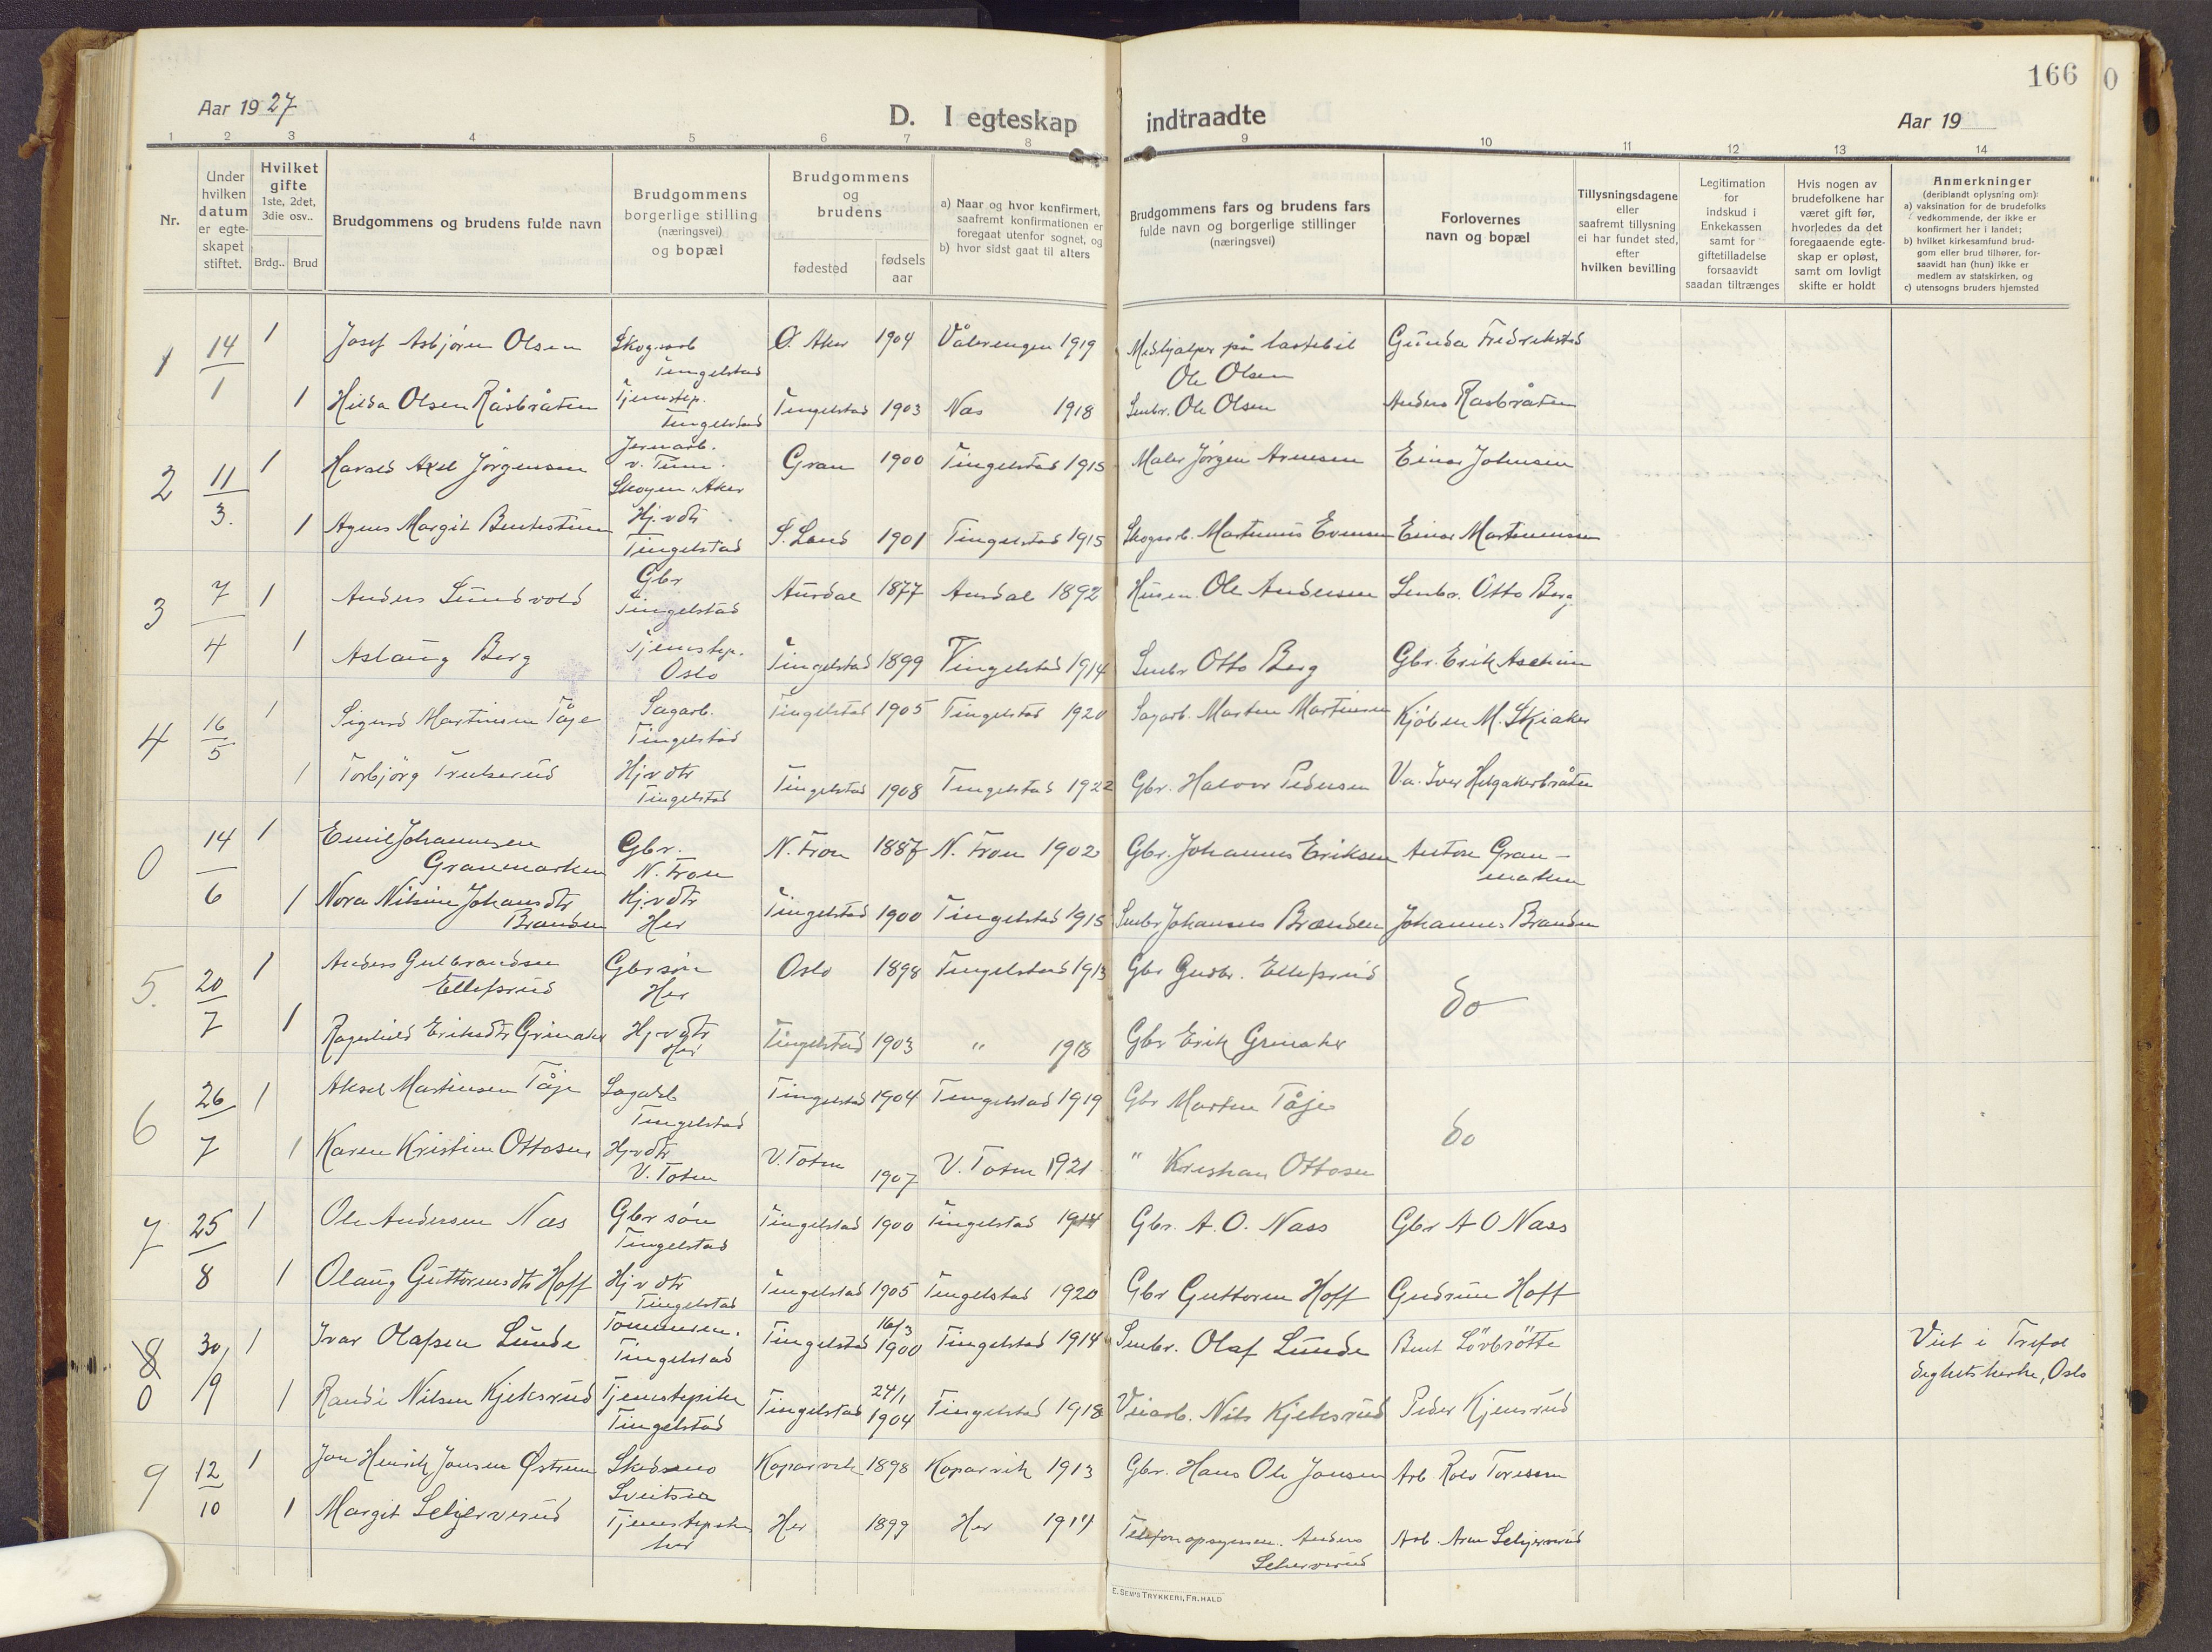 166
0
Aar 1927
D. I egteskap indtraadte
Aar 19
1 2 3 4 5 6 7 8 9 10 11 12 13 14
Nr.
Under hvilken datum er egte-skapet stiftet.
Hvilket gifte 1ste, 2det, 3die osv..
Brdg.. Brud
Brudgommens og brudens fulde navn
Brudgommens borgerlige stilling (næringsvei) og bopæl
Brudgommens og brudens
fødested
fødsels aar
a) Naar og hvor konfirmert, saafremt konfirmationen er foregaat utenfor sognet, og
b) hvor sidst gaat til alters
Brudgommens fars og brudens fars fulde navn og borgerlige stillinger (næringsvei)
Forlovernes navn og bopæl
Tillysningsdagene eller saafremt tillysning ei har fundet sted, efter hvilken bevilling
Legitimation for indskud i Enkekassen samt for giftetilladelse forsaavidt saadan tiltrænges
Hvis nogen av brudefolkene har været gift før, hvorledes da det foregaaende egte-skap er opløst, samt om lovligt skifte er holdt
Anmerkninger
(deriblandt oplysning om):
a) vaksination for de brudefolks vedkommende, der ikke er konfirmert her i landet;
b) hvilket kirkesamfund brud-gom eller brud tilhører, for-saavidt han (hun) ikke er medlem av statskirken, og
c) utensogns bruders hjemsted
1 14/1 1 Josef Asbjørn Olsen Skogsarb Tingelstad Ø. Aker 1904 Vålerengen 1919 Medhjælper på lastebil Ole Olsen Gunda Fredrikstad
1 Hilda Olsen Råsbråten Tjenestep. Tingelstad Tingelstad 1903 Næs 1918 Småbr. Ole Olsen Anders Rasbråten
2 11/3. 1 Harald Axel Jörgensen Jernarb. v. Tune. Skøyen, Aker Gran 1900 Tingelstad 1915 Maler Jörgen Arnesen Einar Johnsen
1 Agnes Margit Hj.v dtr Tingelstad S. Land 1901 Tingelstad 1915 Skogsarb. Martinius Evensen Einar Martinussen
3 7/4 1 Anders Sundvold Gbr Tingelstad Aurdal 1877 Aurdal 1892 Husm. Ole Andersen Smbr. Otto Berg
1 Aslaug Berg Tjenestep. Oslo Tingelstad 1899 Tingelstad 1914 Smbr Otto Berg Gbr. Erik Ascheim
4 16/5 1 Sigurd Martinsen Tåje Sagarb. Tingelstad Tingelstad 1905 Tingelstad 1920 Sagarb. Marten Martinsen Kjöbm M. Skiaker
1 Torbjörg Trulserud Hjv dtr Tingelstad Tingelstad 1908 Tingelstad 1922 Gbr. Halvor Pedersen V.a. Iver Helgakerbråten
0 14/6 1 Emil Johannesen Granmarken Gbr. N. Fron N. Fron 1887 N. Fron 1902 Gbr. Johannes Eriksen Anton Gran-marken
1 Nora Nilsine Johansdtr Branden Hj.v dtr Her Tingelstad 1900 Tingelstad 1915 Smbr. Johannes Brænden Johannes Branden
5. 20/7 1 Anders Gulbrandsen Ellefsrud Gbr søn Her Oslo 1898 Tingelstad 1913 Gbr Gudbr. Ellefsrud do
1 Ragnhild Eriksdtr Grinaker Hj.v dtr Her Tingelstad 1903 " 1918 Gbr Erik Grinaker
6 26/7 1 Aksel Martinsen Tåje Sagarb Tingelstad Tingelstad 1904 Tingelstad 1919 Gbr Marten Tåje do
1 Karen Kristine Ottosen Hjv dtr V. Toten V. Toten 1907 V. Toten 1921 " Kristian Ottosen
7 25/8 1 Ole Andersen Næs Gbr søn Tingelstad Tingelstad 1900 Tingelstad 1914 Gbr. A. O. Næss Gbr A O Næss
1 Olaug Guttormsdtr Hoff Hj.v dtr Tingelstad Tingelstad 1905 Tingelstad 1920 Gbr Guttorm Hoff Gudrun Hoff
8 0 30/9 1 Ivar Olafsen Lunde Tömmerm. Tingelstad Tingelstad 16/3 1900 Tingelstad 1914 Smbr. Olaf Lunde Bent Lövbrötte Viet i Trefol dighetskirke, Oslo
1 Randi Nilsen Kjeksrud Tjenestepike Tingelstad Tingelstad 24/1 1904 Tingelstad 1918 Veiarb. Nils Kjeksrud Peder Kjensrud
9 12/10 1 Jon Henrik Jonsen Østrem Skedsmo Sveitser Kopervik 1898 Kopervik 1913 Gbr. Hans Ole Jonsen Arb. Rolv Toresen
1 Margit Seljerverud Tjenestepike her Her 1899 Her 1914 Telefonopsynsm. Anders Selierverud Arb. Arne Seljerverud
E. SEM'S TRYKKERI, FR.HALD